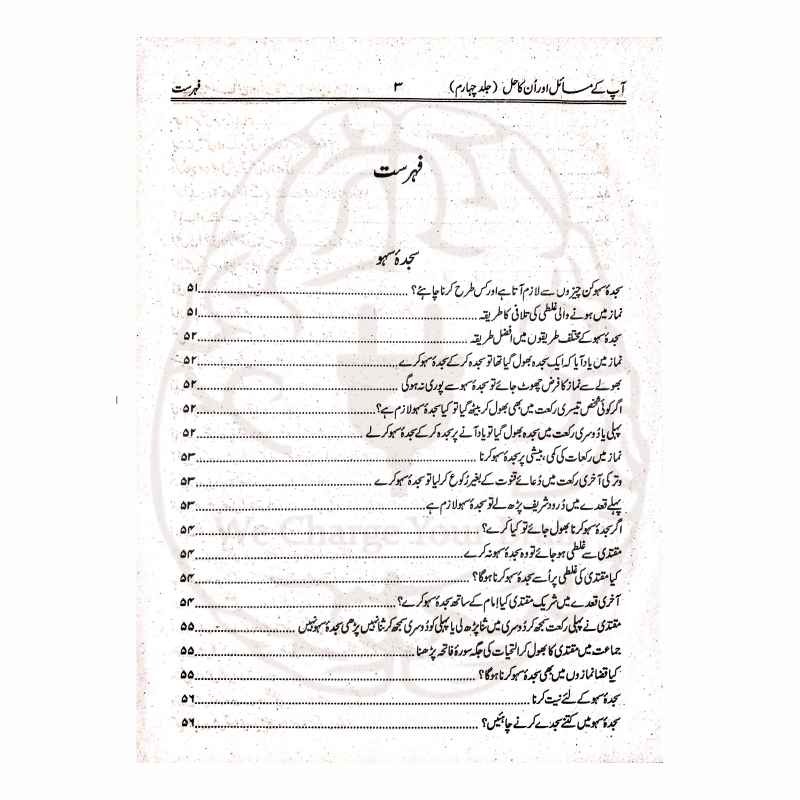 آپ کے مسائل اور اُن کا حل (جلد چہارم) ۳ فہرست
فہرست
سجدۂ سہو
سجدۂ سہو کن چیزوں سے لازم آتا ہے اور کس طرح کرنا چاہئے؟ ۵۱
نماز میں ہونے والی غلطی کی تلافی کا طریقہ ۵۱
سجدۂ سہو کے مختلف طریقوں میں افضل طریقہ ۵۲
نماز میں یاد آیا کہ ایک سجدہ بھول گیا تھا تو سجدہ کر کے سجدۂ سہو کرے ۵۲
بھولے سے نماز کا فرض چھوٹ جائے تو سجدۂ سہو سے پوری نہ ہوگی ۵۲
اگر کوئی شخص تیسری رکعت میں بھی بھول کر بیٹھ گیا تو کیا سجدۂ سہو لازم ہے؟ ۵۲
پہلی یا دُوسری رکعت میں سجدہ بھول گیا تو یاد آنے پر سجدہ کر کے سجدۂ سہو کر لے ۵۲
نماز میں رکعات کی کمی، بیشی پر سجدۂ سہو کرنا ۵۳
وتر کی آخری رکعت میں دُعائے قنوت کے بغیر رُکوع کر لیا تو سجدۂ سہو کرے ۵۳
پہلے قعدے میں دُرود شریف پڑھ لے تو سجدۂ سہو لازم ہے ۵۳
اگر سجدۂ سہو کرنا بھول جائے تو کیا کرے؟ ۵۴
مقتدی سے غلطی ہو جائے تو وہ سجدۂ سہو نہ کرے ۵۴
کیا مقتدی کی غلطی پر اُسے سجدۂ سہو کرنا ہوگا؟ ۵۴
آخری قعدے میں شریک مقتدی کیا امام کے ساتھ سجدۂ سہو کرے؟ ۵۴
مقتدی نے پہلی رکعت سمجھ کر دُوسری میں ثنا پڑھ لی یا پہلی کو دُوسری سمجھ کر ثنا نہیں پڑھی سجدۂ سہو نہیں ۵۵
جماعت میں مقتدی کا بھول کر التحیات کی جگہ سورۂ فاتحہ پڑھنا ۵۵
کیا قضا نمازوں میں بھی سجدۂ سہو کرنا ہوگا؟ ۵۵
سجدۂ سہو کے لئے نیت کرنا ۵۶
سجدۂ سہو میں کتنے سجدے کرنے چاہئیں؟ ۵۶
We Charge Your